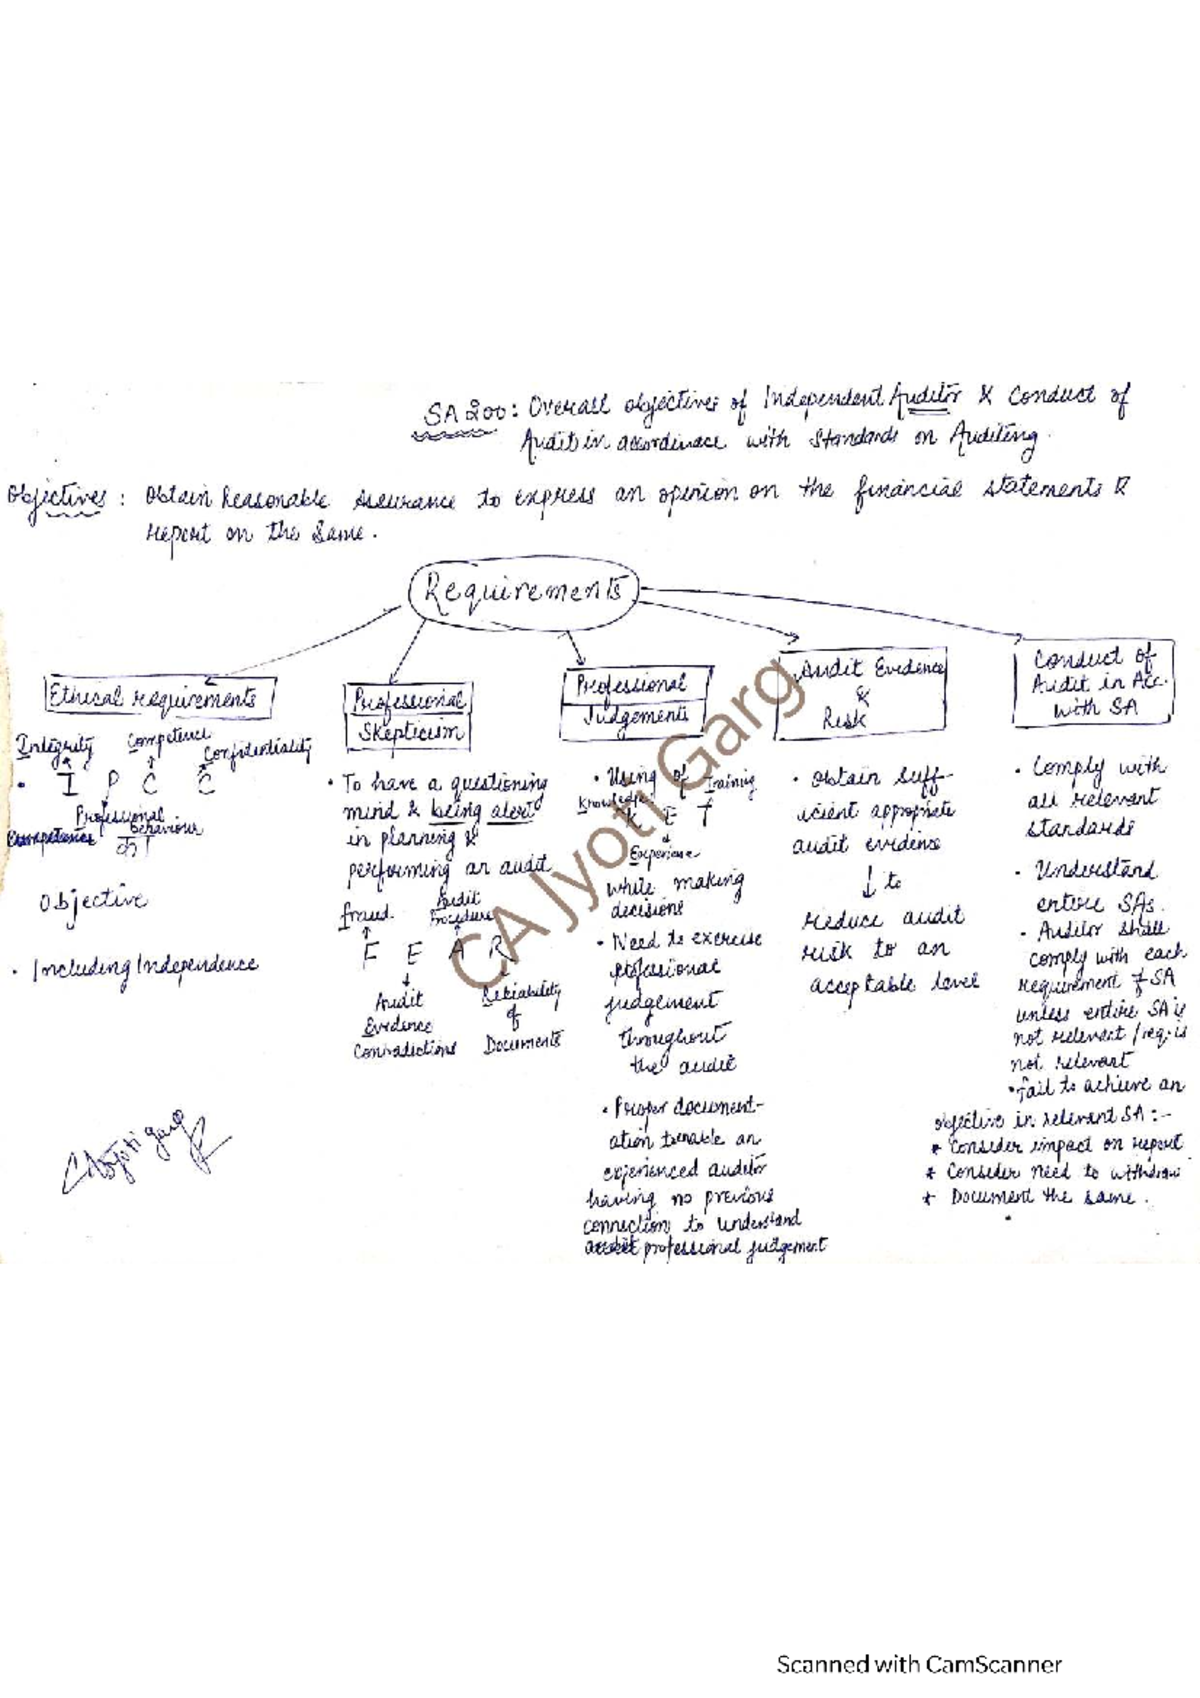 SA 200: Overall objectives of Independent Auditor & Conduct of
Audit in accordinace with Standards on Auditing.
Objectives: Obtain Reasonable Assurance to express an opinion on the financial statements &
report on the same.
Requirements
Ethical requirements
Integrity Competence Confidentiality
• I P C C
Professional behaviour
Competence का
Objective
• Including Independence
CA Jyoti Garg
Professional
Skepticism
• To have a questioning
mind & being alert
in planning &
performing an audit
fraud Audit Procedure
F E A R
Audit Evidence Contradictions
Reliability of Documents
Professional
Judgements
• Using of
Knowledge Training
K E T
Experience
while making
decisions
• Need to exercise
professional
judgement
throughout
the audit
• Proper document-
ation tenable an
experienced auditor
having no previous
connection to understand
professional judgement
Audit Evidence
&
Risk
• obtain suff-
icient appropriate
audit evidence
↓ to
reduce audit
risk to an
acceptable level
Conduct of
Audit in Acc.
with SA
• Comply with
all relevant
standards
• Understand
entire SAs.
• Auditor shall
comply with each
requirement of SA
unless entire SA is
not relevant / req. is
not relevant
• fail to achieve an
objective in relevant SA:-
* Consider impact on report
* Consider need to withdraw
* Document the same.
CA Jyoti Garg
Scanned with CamScanner